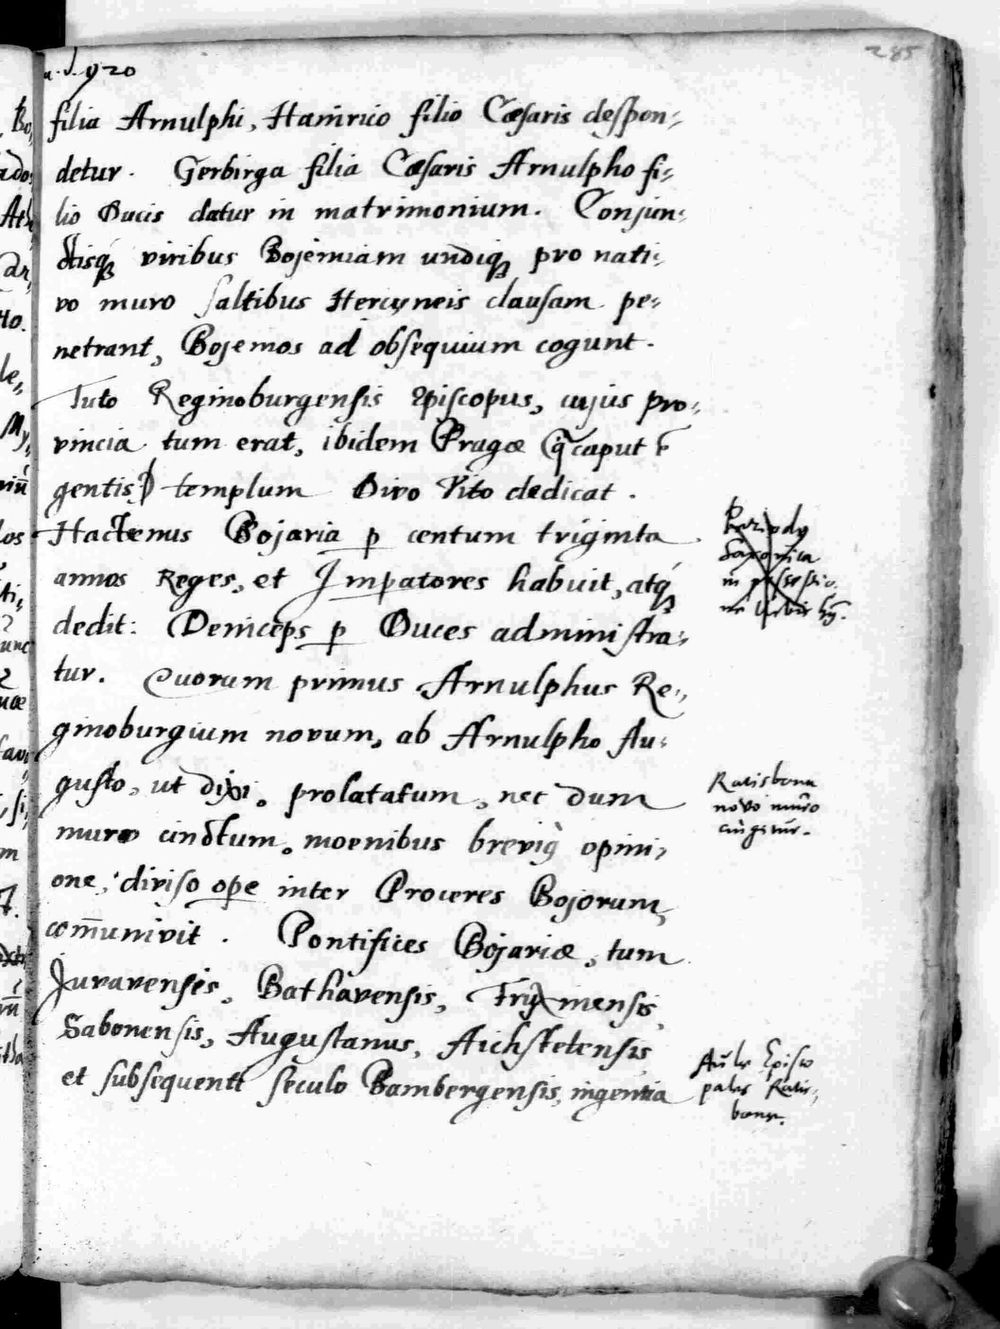 285
a. d. 920
filia Arnulphi, Hainrico filio Cæsaris despon-
detur. Gerbirga filia Cæsaris Arnulpho fi-
lio Ducis datur in matrimonium. Conjun-
ctisq́ue viribus Bojemiam undiq́ue pro nati-
vo muro saltibus Hercyneis clausam pe-
netrant, Bojemos ad obsequium cogunt.
Tuto Reginoburgensis Episcopus, cujus pro-
vincia tum erat, ibidem Pragæ (q̃ caput ẽ
gentis) templum Divo Vito dedicat.
Hactenus Bojaria p centum triginta
annos Reges, et Impatores habuit, atq́ue
dedit: Deniceps p Duces administra-
tur. Quorum primus Arnulphus Re-
ginoburgium novum, ab Arnulpho Au-
gusto, ut dixi, prolatatum, nec dum
muro cinctum, moenibus brevi9 opini-
one, diviso ope inter Proceres Bojorum,
com̃univit. Pontifices Bojariæ, tum
Juvavensis, Bathavensis, Fryxinensis,
Sabonensis, Augustanus, Aichstetensis
et subsequenti seculo Bambergensis, ingentia
Saxonica
in
Ratisbona
novo muro
cingitur.
Aule Episco
pales Ratis-
bone.